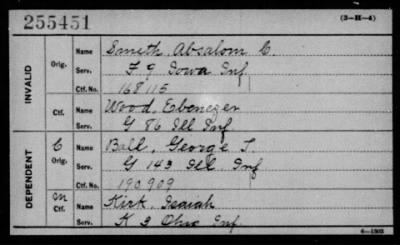 255451 (3-H-4)
INVALID
Orig. Name Smith, Absalom C.
Serv. F 9 Iowa Inf
Ctf. No. 168115
Ctf. Name Wood, Ebenezer
Serv. G 86 Ill Inf
DEPENDENT
C Orig. Name Ball, George T.
Serv. G 143 Ill. Inf
Ctf. No. 190909
Ctf. Name Kirk, Isaiah
Serv. K 3 Ohio Inf
6-1303